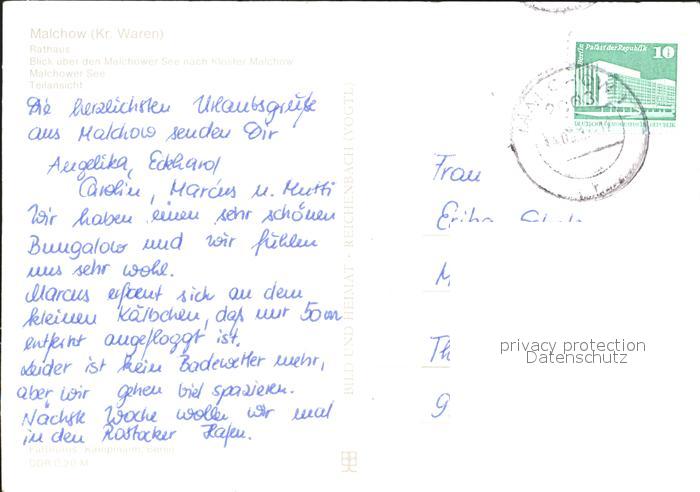 Malchow (Kr. Waren)
Rathaus
Blick über den Malchower See nach Kloster Malchow
Malchower See
Teilansicht
Die herzlichsten Urlaubsgrüße
aus Malchow senden Dir
Angelika, Eckhard,
Carolin, Marcus u. Mutti
Wir haben einen sehr schönen
Bungalow und wir fühlen
uns sehr wohl.
Marcus erfreut sich an dem
kleinen Kälbchen, daß nur 50 m
entfernt angefloggt ist.
Leider ist kein Badewetter mehr,
aber wir gehen viel spazieren.
Nächste Woche wollen wir mal
in den Rostocker Hafen.
Farbfoto: Kampmann, Berlin
DDR 0,20 M
BILD UND HEIMAT · REICHENBACH (VOGTL)
Berlin Palast der Republik
10
Frau
privacy protection
Datenschutz